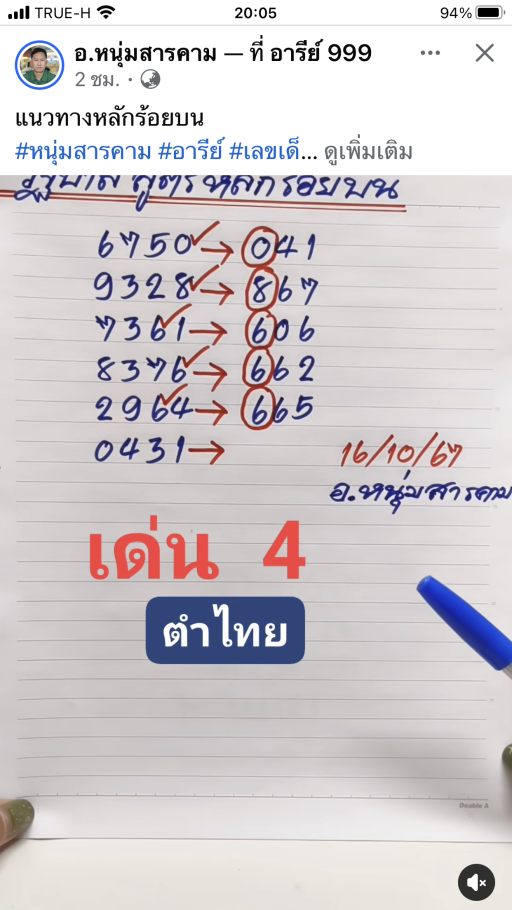 TRUE-H 20:05 94%
อ.หนุ่มสารคาม — ที่ อารีย์ 999
2 ชม.
แนวทางหลักร้อยบน
#หนุ่มสารคาม #อารีย์ #เลขเด็... ดูเพิ่มเติม
สูตรหลักร้อยบน
6750 → 041
9328 → 867
7361 → 606
8376 → 662
2964 → 665
0431 →
16/10/67
อ.หนุ่มสารคาม
เด่น 4
ตำไทย
Double A